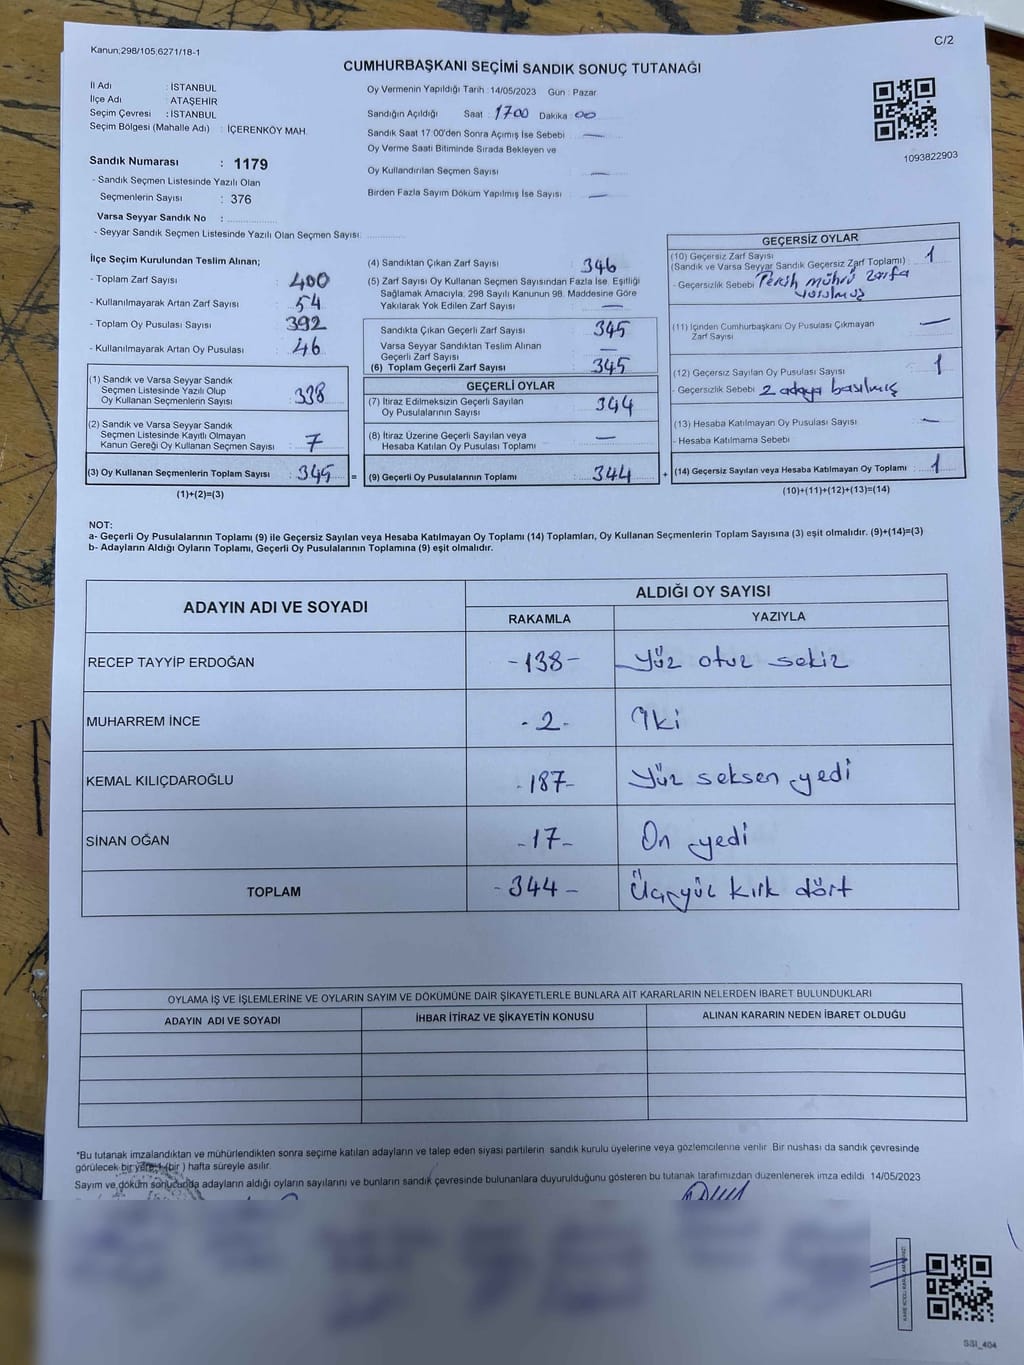 C/2
Kanun;298/105;6271/18-1
CUMHURBAŞKANI SEÇİMİ SANDIK SONUÇ TUTANAĞI
İl Adı : İSTANBUL
İlçe Adı : ATAŞEHİR
Seçim Çevresi : İSTANBUL
Seçim Bölgesi (Mahalle Adı) : İÇERENKÖY MAH.
Sandık Numarası : 1179
- Sandık Seçmen Listesinde Yazılı Olan
Seçmenlerin Sayısı : 376
Varsa Seyyar Sandık No :
- Seyyar Sandık Seçmen Listesinde Yazılı Olan Seçmen Sayısı:
Oy Vermenin Yapıldığı Tarih : 14/05/2023 Gün : Pazar
Sandığın Açıldığı Saat : 1700 Dakika : 00
Sandık Saat 17:00'den Sonra Açımış İse Sebebi : —
Oy Verme Saati Bitiminde Sırada Bekleyen ve
Oy Kullandırılan Seçmen Sayısı : —
Birden Fazla Sayım Döküm Yapılmış İse Sayısı : —
1093822903
İlçe Seçim Kurulundan Teslim Alınan;
- Toplam Zarf Sayısı : 400
- Kullanılmayarak Artan Zarf Sayısı : 54
- Toplam Oy Pusulası Sayısı : 392
- Kullanılmayarak Artan Oy Pusulası : 46
(1) Sandık ve Varsa Seyyar Sandık
Seçmen Listesinde Yazılı Olup
Oy Kullanan Seçmenlerin Sayısı : 338
(2) Sandık ve Varsa Seyyar Sandık
Seçmen Listesinde Kayıtlı Olmayan
Kanun Gereği Oy Kullanan Seçmen Sayısı : 7
(3) Oy Kullanan Seçmenlerin Toplam Sayısı : 345 =
(1)+(2)=(3)
(4) Sandıktan Çıkan Zarf Sayısı : 346
(5) Zarf Sayısı Oy Kullanan Seçmen Sayısından Fazla İse, Eşitliği
Sağlamak Amacıyla, 298 Sayılı Kanunun 98. Maddesine Göre
Yakılarak Yok Edilen Zarf Sayısı : —
Sandıkta Çıkan Geçerli Zarf Sayısı : 345
Varsa Seyyar Sandıktan Teslim Alınan
Geçerli Zarf Sayısı : —
(6) Toplam Geçerli Zarf Sayısı : 345
GEÇERLİ OYLAR
(7) İtiraz Edilmeksizin Geçerli Sayılan
Oy Pusulalarının Sayısı : 344
(8) İtiraz Üzerine Geçerli Sayılan veya
Hesaba Katılan Oy Pusulası Toplamı : —
(9) Geçerli Oy Pusulalarının Toplamı : 344 +
GEÇERSİZ OYLAR
(10) Geçersiz Zarf Sayısı
(Sandık ve Varsa Seyyar Sandık Geçersiz Zarf Toplamı) : 1
- Geçersizlik Sebebi : Tercih mührü zarfa
vurulmuş
(11) İçinden Cumhurbaşkanı Oy Pusulası Çıkmayan
Zarf Sayısı : —
(12) Geçersiz Sayılan Oy Pusulası Sayısı : 1
- Geçersizlik Sebebi : 2 adaya basılmış
(13) Hesaba Katılmayan Oy Pusulası Sayısı : —
- Hesaba Katılmama Sebebi
(14) Geçersiz Sayılan veya Hesaba Katılmayan Oy Toplamı : 1
(10)+(11)+(12)+(13)=(14)
NOT:
a- Geçerli Oy Pusulalarının Toplamı (9) ile Geçersiz Sayılan veya Hesaba Katılmayan Oy Toplamı (14) Toplamları, Oy Kullanan Seçmenlerin Toplam Sayısına (3) eşit olmalıdır. (9)+(14)=(3)
b- Adayların Aldığı Oyların Toplamı, Geçerli Oy Pusulalarının Toplamına (9) eşit olmalıdır.
ADAYIN ADI VE SOYADI
ALDIĞI OY SAYISI
RAKAMLA YAZIYLA
RECEP TAYYİP ERDOĞAN -138- Yüz otuz sekiz
MUHARREM İNCE -2- İki
KEMAL KILIÇDAROĞLU -187- Yüz seksen yedi
SİNAN OĞAN -17- On yedi
TOPLAM -344- Üçyüz kırk dört
OYLAMA İŞ VE İŞLEMLERİNE VE OYLARIN SAYIM VE DÖKÜMÜNE DAİR ŞİKAYETLERLE BUNLARA AİT KARARLARIN NELERDEN İBARET BULUNDUKLARI
ADAYIN ADI VE SOYADI İHBAR İTİRAZ VE ŞİKAYETİN KONUSU ALINAN KARARIN NEDEN İBARET OLDUĞU
*Bu tutanak imzalandıktan ve mühürlendikten sonra seçime katılan adayların ve talep eden siyasi partilerin sandık kurulu üyelerine veya gözlemcilerine verilir. Bir nüshası da sandık çevresinde
görülecek bir yere 1 (bir) hafta süreyle asılır.
Sayım ve döküm sonucunda adayların aldığı oyların sayılarını ve bunların sandık çevresinde bulunanlara duyurulduğunu gösteren bu tutanak tarafımızdan düzenlenerek imza edildi. 14/05/2023
SSI_404